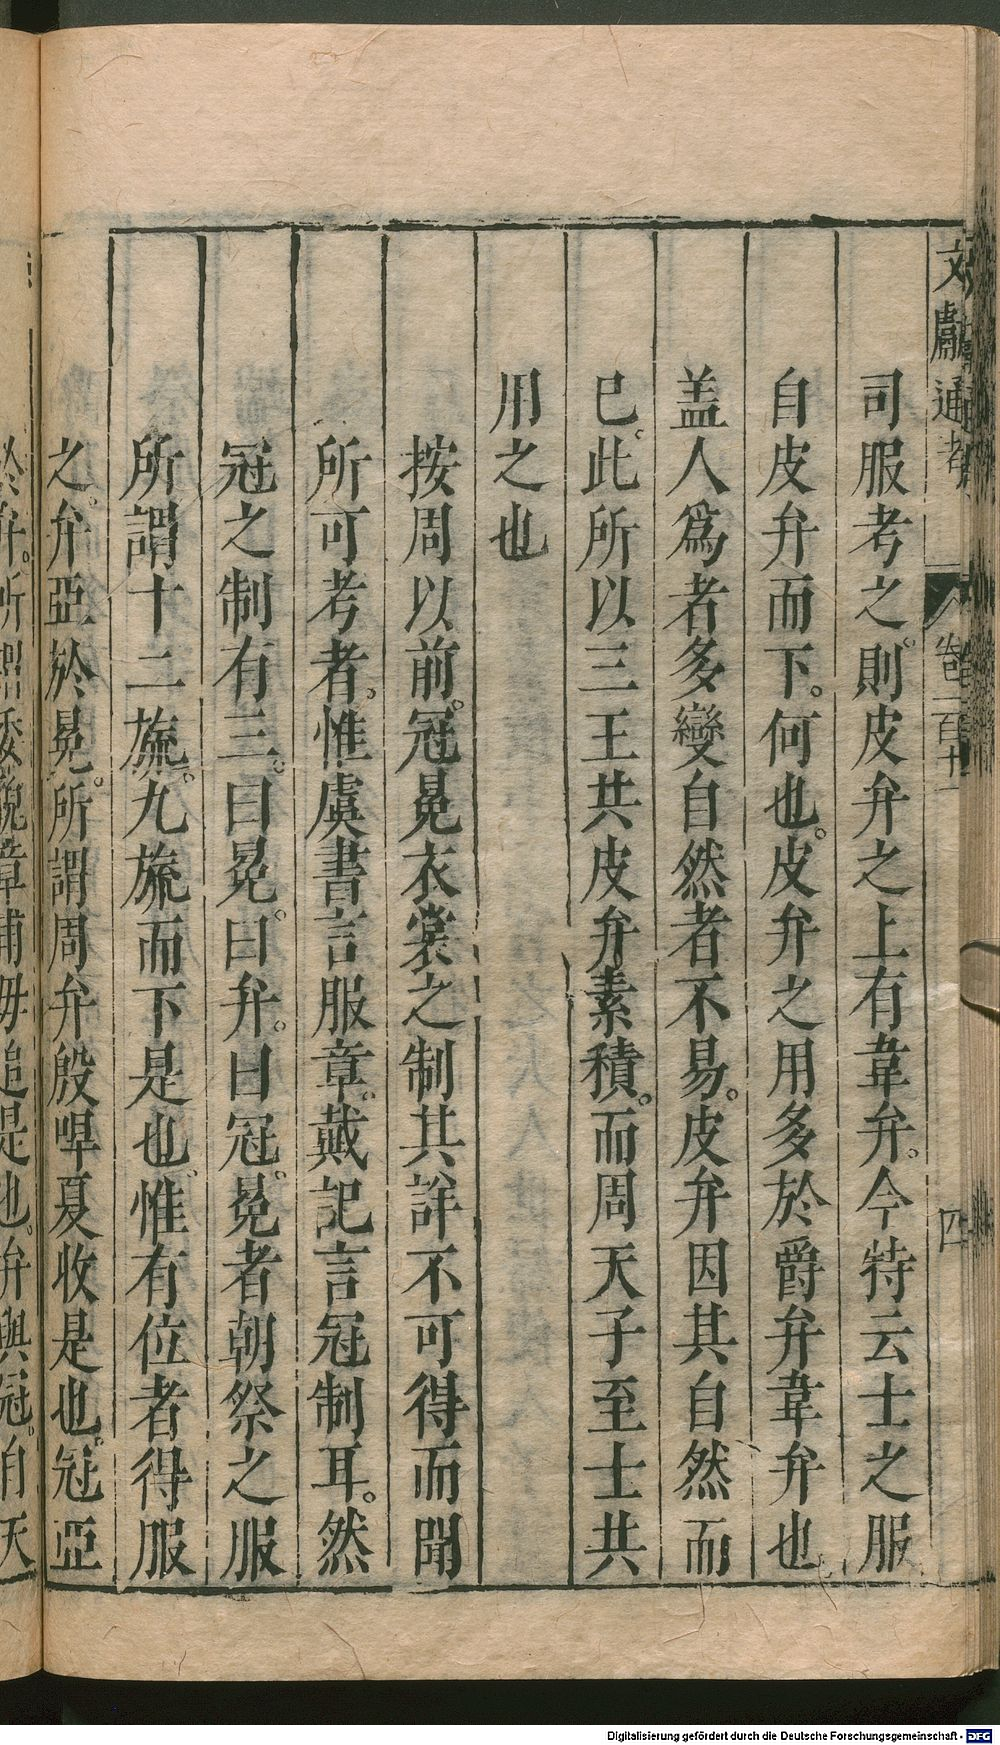 文獻通考 卷一百十一 四
司服考之。則皮弁之上有韋弁。今特云士之服
自皮弁而下。何也。皮弁之用多於爵弁韋弁也
盖人爲者多變自然者不易。皮弁因其自然而
已。此所以三王共皮弁素積。而周天子至士共
用之也
按周以前。冠冕衣裳之制其詳不可得而聞
所可考者。惟虞書言服章。戴記言冠制耳。然
冠之制有三。曰冕。曰弁。曰冠。冕者朝祭之服
所謂十二旒。九旒而下是也。惟有位者得服
之。弁亞於冕。所謂周弁殷冔夏收是也。冠亞
於弁。所謂委貌章甫毋追是也。弁與冠。自天
Digitalisierung gefördert durch die Deutsche Forschungsgemeinschaft - DFG